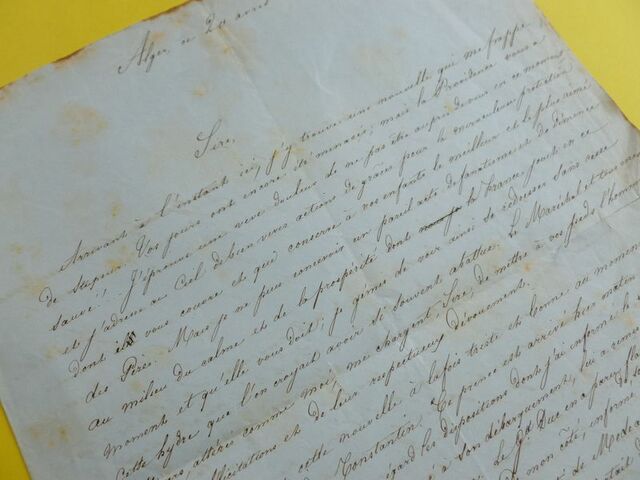 Alger, ce 20 avril
Sire,
Arrivant à l'instant ici, j'y trouve une nouvelle qui me frappe
de stupeur. Vos jours ont encore été menacés; mais la Providence vous a
sauvé! J'éprouve une vive douleur de ne pas être auprès de vous en ce moment
et j'adresse au Ciel de bien vives actions de grâces pour la miraculeuse protection
dont il vous couvre et qui conserve à vos enfants le meilleur et le plus aimé
des Père. Mais je ne puis concevoir un pareil acte de fanatisme et de démence
au milieu du calme et de la prospérité dont la France jouit en ce
moment et qu'elle vous doit; je gémis de voir ainsi se redresser sans cesse
cette hydre que l'on croyait avoir si souvent abattue. Le Maréchal et tous
altérés comme moi, me chargent, Sire, de mettre à vos pieds l'
félicitations et de leur respectueux dévouement.
cette nouvelle à la fois triste et bonne au moment
Constantin. Ce prince est arrivé hier matin
égard les dispositions dont j'ai informé le
à son débarquement, lui a
le Gd Duc en a paru
mon côté, informé
de